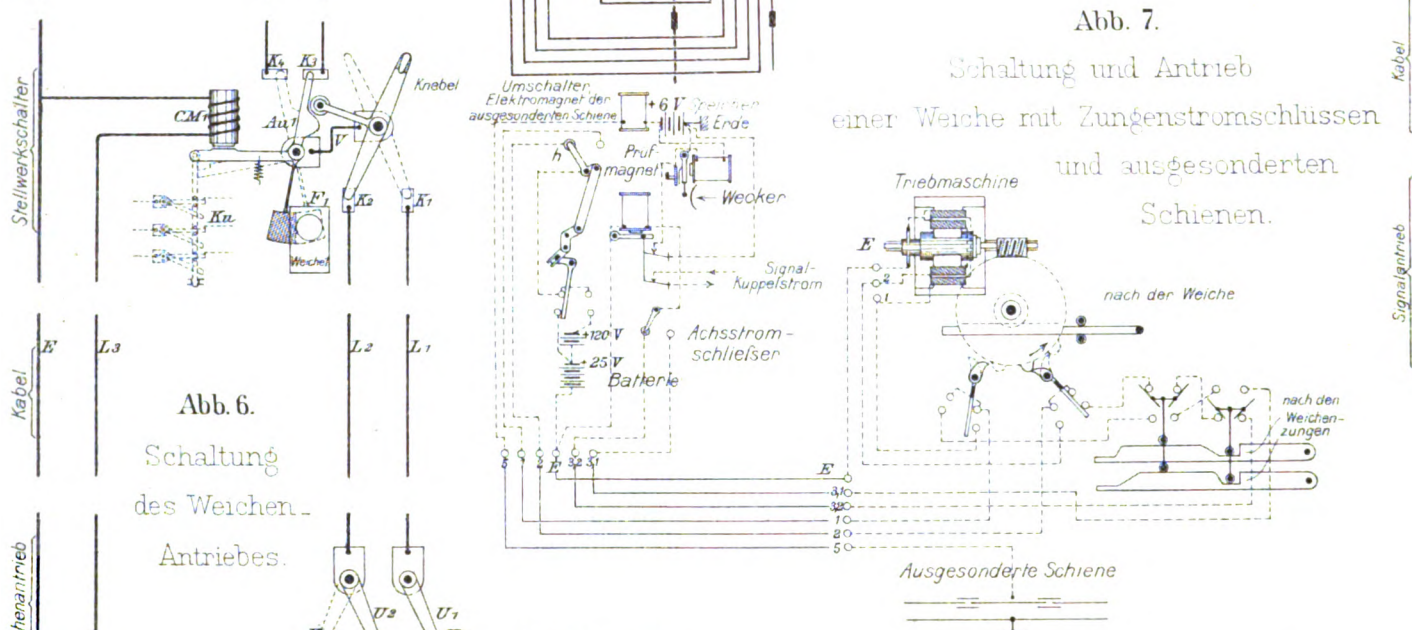 Stellwerkschalter
Kabel
K4 K3
Knebel
CM1
Au1
V
F1
K2
K1
Ku
Weiche1
E
L3
L2
L1
Abb. 6.
Schaltung
des Weichen-
Antriebes.
U2
U1
Umschalter
Elektromagnet der
ausgesonderten Schiene
+ 6 V
Erde
h
Prüf-
magnet
Wecker
Signal-
Kuppelstrom
+120 V
+ 25 V
Batterie
Achsstrom-
schließer
5 1 2 E 3,2 3,1
Abb. 7.
Schaltung und Antrieb
einer Weiche mit Zungenstromschlüssen
und ausgesonderten
Schienen.
Triebmaschine
E
2
1
nach der Weiche
nach den
Weichen-
zungen
E
3,1
3,2
1
2
5
Ausgesonderte Schiene
Kabel
Signalantrieb